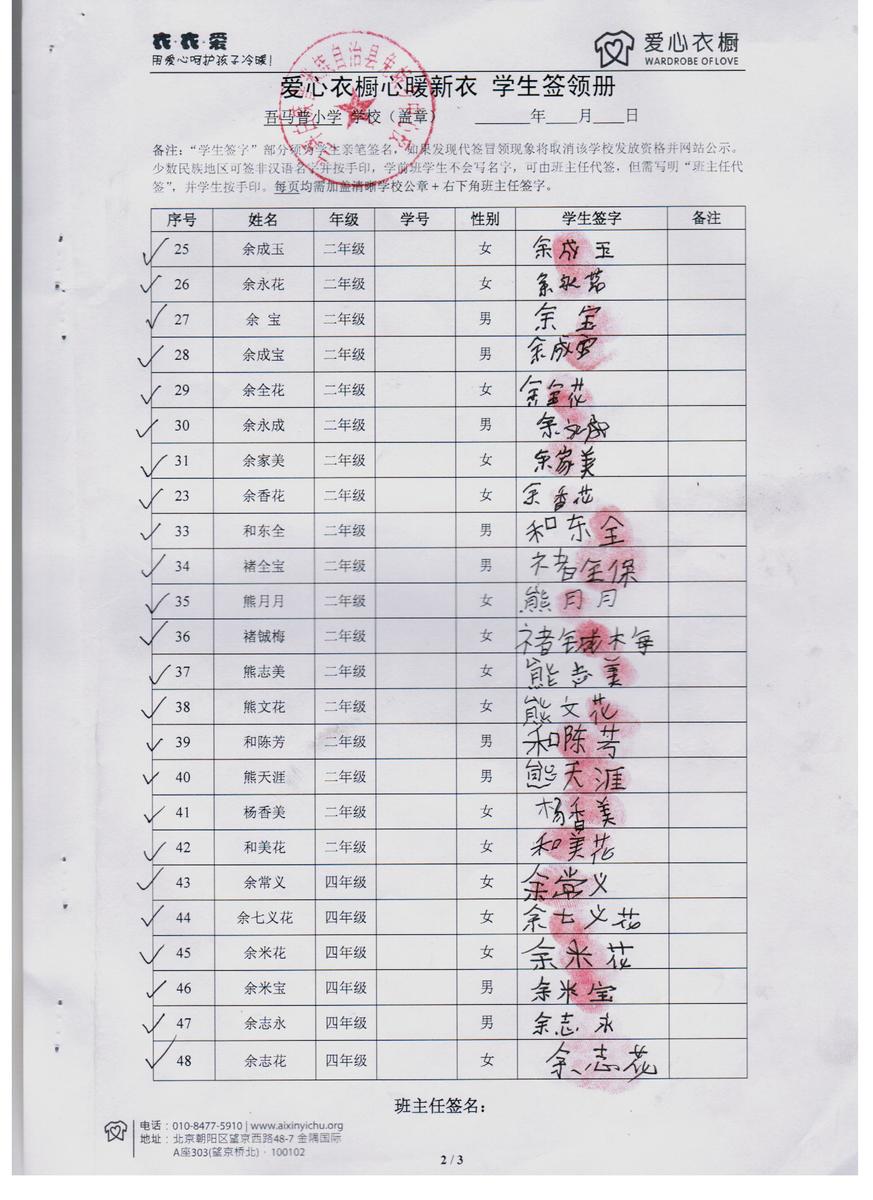 衣·衣·爱
用爱心呵护孩子冷暖！
爱心衣橱
WARDROBE OF LOVE
爱心衣橱心暖新衣 学生签领册
吾马普小学 学校（盖章） ______年____月____日
备注：“学生签字”部分须为学生亲笔签名，如果发现代签冒领现象将取消该学校发放资格并网站公示。
少数民族地区可签非汉语名字并按手印，学前班学生不会写名字，可由班主任代签，但需写明“班主任代
签”，并学生按手印。每页均需加盖清晰学校公章+右下角班主任签字。
序号 姓名 年级 学号 性别 学生签字 备注
25 余成玉 二年级 女 余成玉
26 余永花 二年级 女 余永花
27 余 宝 二年级 男 余宝
28 余成宝 二年级 男 余成宝
29 余全花 二年级 女 余全花
30 余永成 二年级 男 余永成
31 余家美 二年级 女 余家美
23 余香花 二年级 女 余香花
33 和东全 二年级 男 和东全
34 褚全宝 二年级 男 褚全保
35 熊月月 二年级 女 熊月月
36 褚铖梅 二年级 女 褚铖梅
37 熊志美 二年级 女 熊志美
38 熊文花 二年级 女 熊文花
39 和陈芳 二年级 男 和陈芳
40 熊天涯 二年级 男 熊天涯
41 杨香美 二年级 女 杨香美
42 和美花 二年级 女 和美花
43 余常义 四年级 女 余常义
44 余七义花 四年级 女 余七义花
45 余米花 四年级 女 余米花
46 余米宝 四年级 男 余米宝
47 余志永 四年级 男 余志永
48 余志花 四年级 女 余志花
班主任签名：
电话：010-8477-5910 | www.aixinyichu.org
地址：北京朝阳区望京西路48-7 金隅国际
A座303(望京桥北)·100102
2 / 3